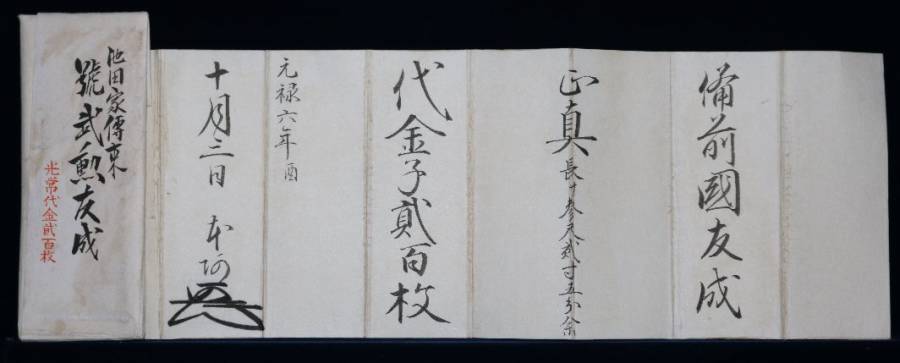 備前國友成
正真 長サ参尺貳寸五分余
代金子貳百枚
元禄六年酉
十月三日 本阿
池田家傳来
號武勲友成
光常代金貳百枚